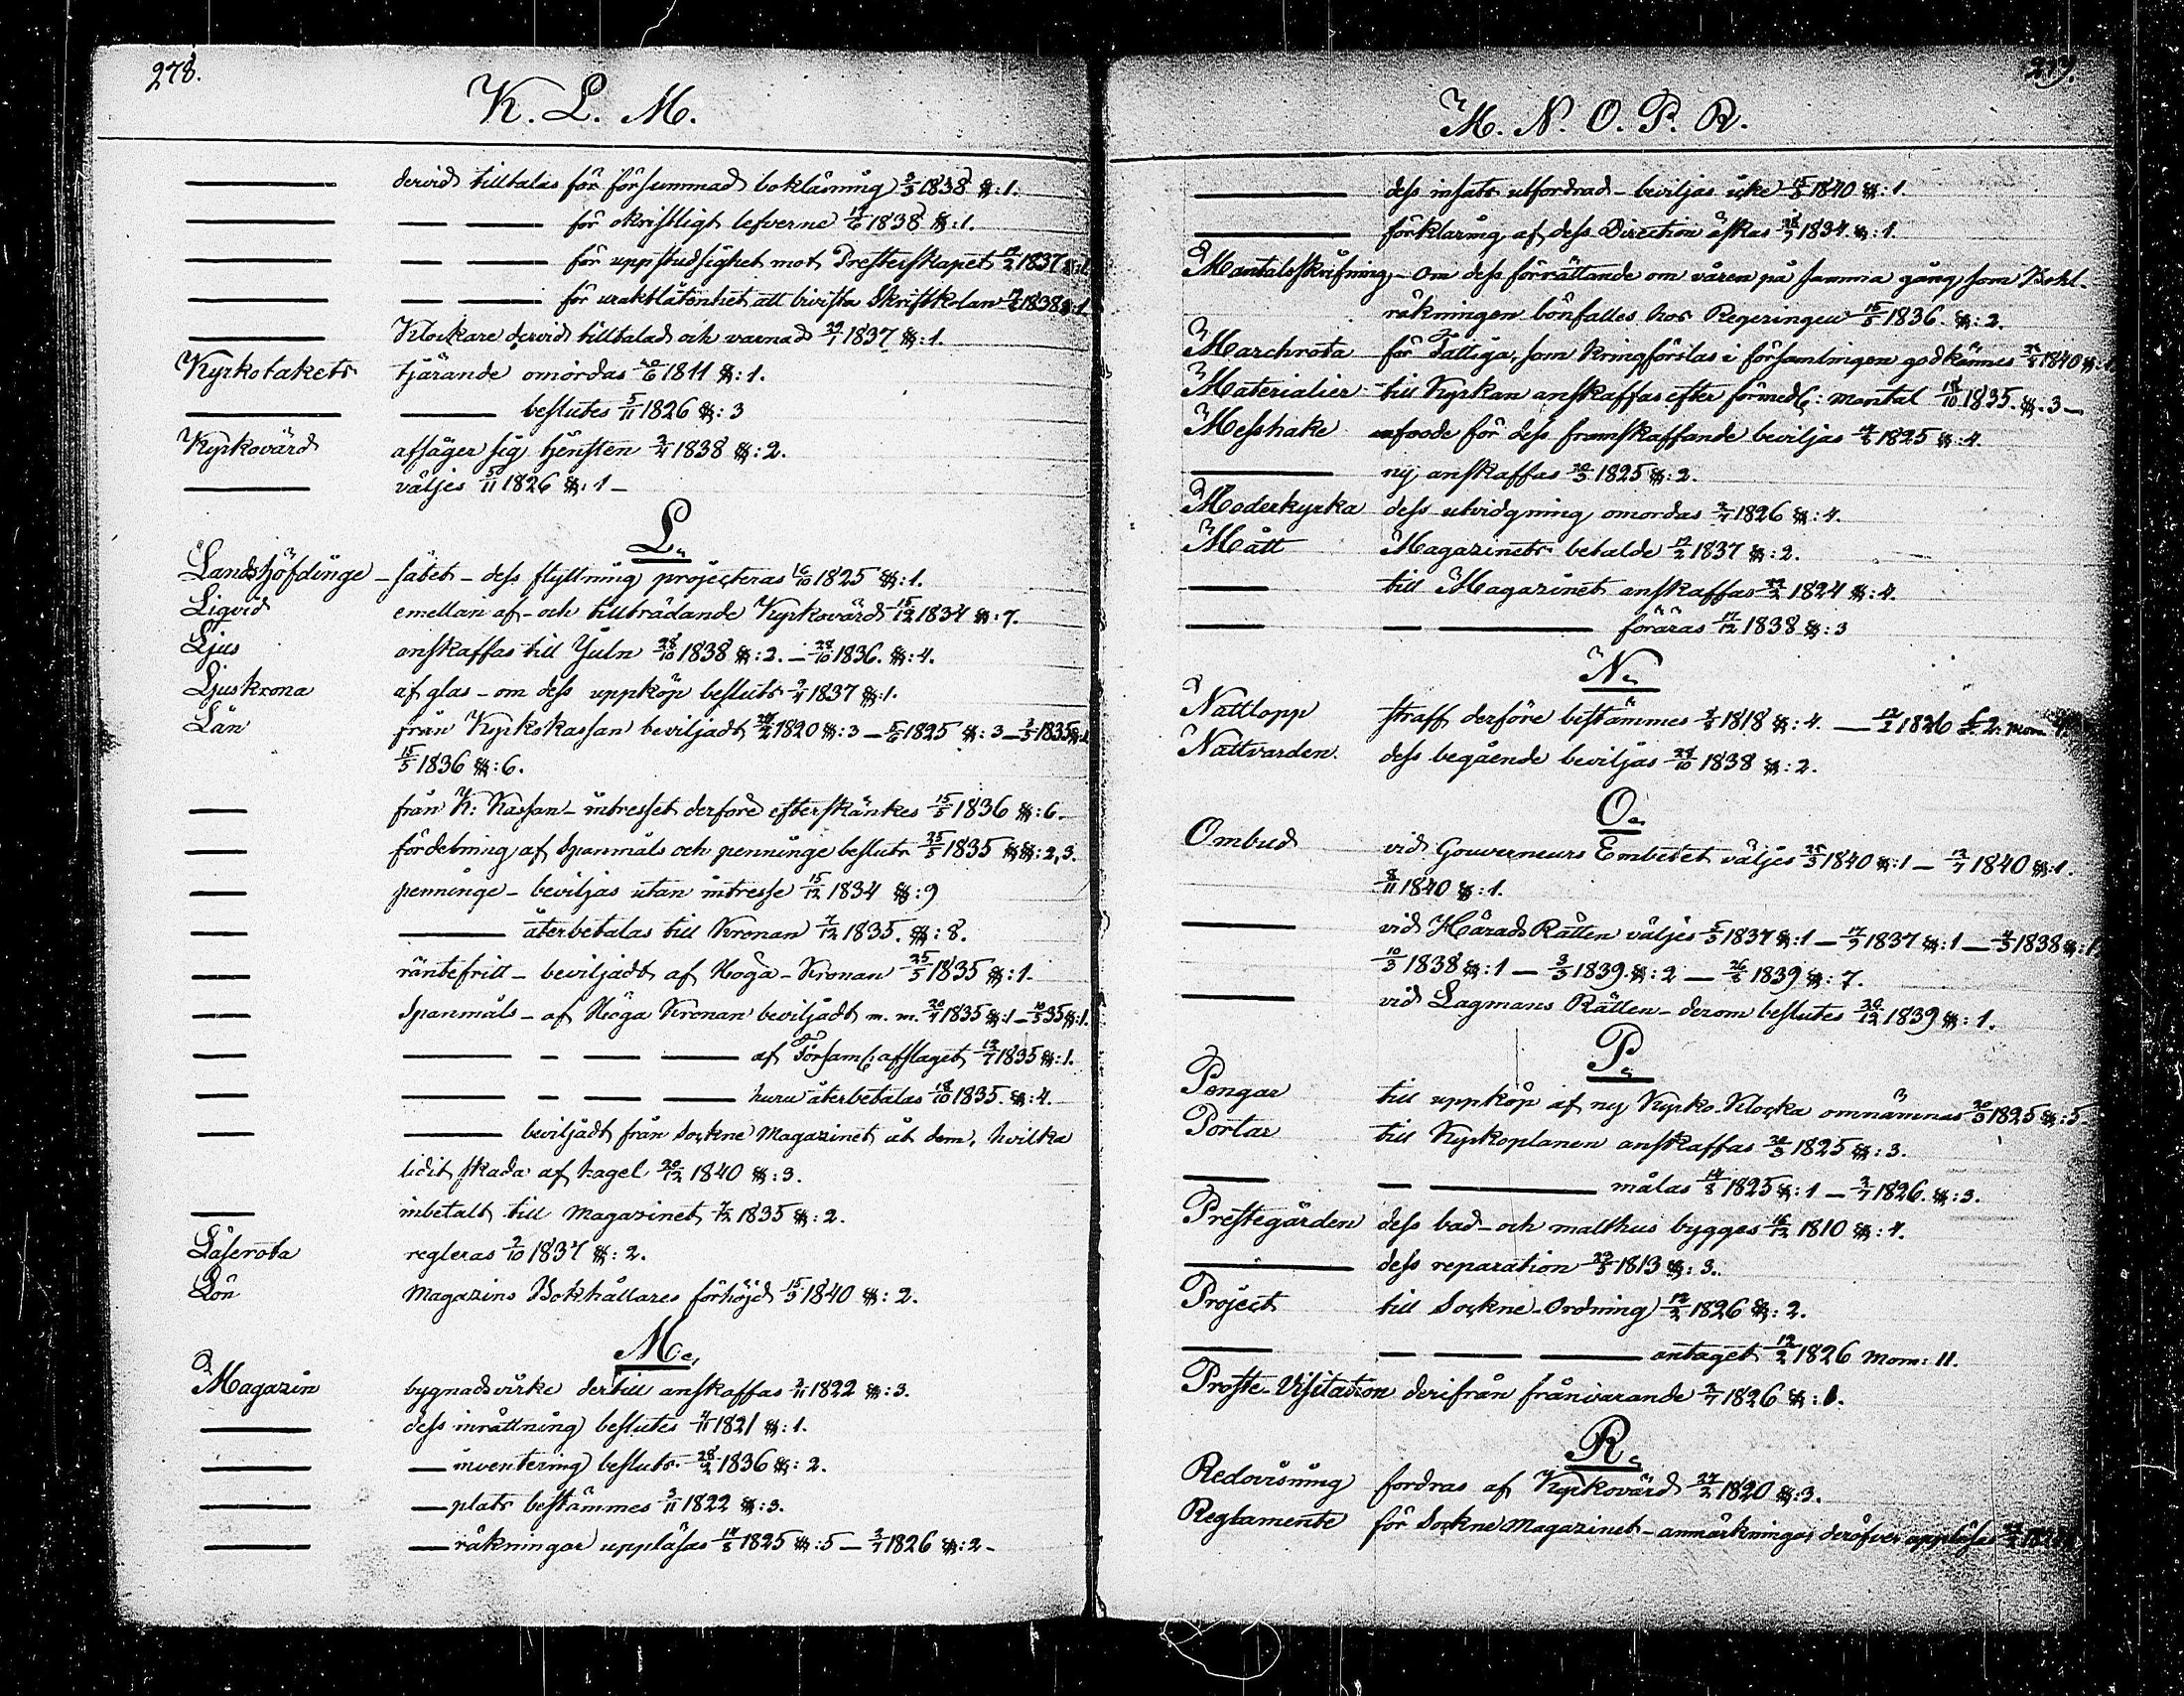 278.
K. L. M.
——— dervid tilltalas för försummad bokläsning 3/5 1838 §:1.
——— — —— för okristligt lefverne 17/6 1838 §:1.
——— — —— för uppstudsighet mot Presterskapet 12/2 1837 §:1
——— — —— för uraktlåtenhet att bivista Skriftskolan 1838 §:1
——— Klockare dervid tilltalad och varnad 29/1 1837 §:1.
Kyrkotakets tjärande omordas 10/6 1811 §:1.
——— ——— beslutes 5/11 1826 §:3
Kyrkovärd afsäger sig tjensten 2/4 1838 §:2.
——— väljes 5/11 1826 §:1 –
L.
Landshöfdinge – sätet – dess flyttning projecteras 16/10 1825 §:1.
Liqvid emellan af- och tillträdande Kyrkovärd 15/12 1834 §:7.
Ljus anskaffas till Juln 28/10 1838 §:2. – 28/10 1836. §:4.
Ljuskrona af glas – om dess uppköp besluts 2/4 1837 §:1.
Lån från Kyrkokassan beviljadt 24/2 1820 §:3 – 5/6 1825 §:3 – 3/5 1835 §:1
15/5 1836 §:6.
—— från K: Kassan – intresset derföre efterskänkes 15/5 1836 §:6.
—— fördelning af spanmåls och penninge besluts 25/5 1835 §§:2,3.
—— penninge – beviljas utan intresse 15/12 1834 §:9
—— ——— återbetalas till Kronan 7/12 1835. §:8.
—— räntefritt – beviljadt af Höga – Kronan 25/5 1835 §:1.
—— Spanmåls – af Höga Kronan beviljadt m. m. 20/4 1835 §:1 – 10/5 35 §:1.
—— ——— – — —— af Församl: afslaget 12/7 1835 §:1.
—— ——— – — —— huru återbetalas 18/10 1835. §:4.
—— ——— beviljadt från Sockne Magazinet åt dem, hvilka
lidit skada af hagel 20/12 1840 §:3.
—— inbetalt till Magazinet 7/12 1835 §:2.
Läserota regleras 2/10 1837 §:2.
Lön Magazins Bokhållares förhöjd 15/3 1840 §:2.
M.
Magazin bygnadsvirke dertill anskaffas 3/11 1822 §:3.
——— dess inrättning beslutes 4/11 1821 §:1.
——— — inventering besluts 28/2 1836 §:2.
——— — plats bestämmes 3/11 1822 §:3.
——— — räkningar uppläsas 14/8 1825 §:5 – 2/7 1826 §:2 –
279.
M. N. O. P. R.
——— dess insats utfordrad – beviljas icke 1840 §:1.
——— förklaring af dess Direction äskas 1834 §:1.
Mantalsskrifning – om dess förrättande om våren på samma gång som Bohl-
räkningen bönfalles hos Regeringen 15/5 1836. §:2.
Marchrota för Fattiga, som kringförslas i församlingen godkännes 1840 §:1
Materialier till Kyrkan anskaffas efter förmedl: mantal 18/10 1835. §.3 –
Messhake foode för dess framskaffande beviljas 1825 §:4.
——— ny anskaffas 20/3 1825 §:2.
Moderkyrka dess utvidgning omordas 2/7 1826 §:4.
Mått Magazinets betalde 12/2 1837 §:2.
—— till Magazinet anskaffas 22/2 1824 §:4.
—— — ——— föräras 17/12 1838 §:3
N.
Nattlopp straff derföre bestämmes 1818 §:4. — 12/2 1826 § 2. mom
Nattvarden. dess begående beviljas 28/10 1838 §:2.
O.
Ombud vid Gouverneurs Embetet väljes 25/3 1840 §:1 – 12/7 1840 §:1.
8/11 1840 §:1.
——— vid Härads Rätten väljes 5/3 1837 §:1 – 17/9 1837 §:1 – 4/3 1838 §:1
10/3 1838 §:1 – 3/3 1839. §:2 – 26/8 1839 §:7.
——— vid Lagmans Rätten – derom beslutes 26/12 1839 §:1.
P.
Pengar till uppköp af ny Kyrko-Klocka omnämnas 20/3 1825 §:5
Portar till Kyrkoplanen anskaffas 20/3 1825 §:3.
—— — ——— målas 14/8 1825 §:1 – 2/7 1826. §:3.
Prestegården dess bad- och malthus bygges 16/12 1810 §:4.
——— dess reparation 23/5 1813 §:3.
Project till Sockne-Ordning 12/2 1826 §:2.
—— — —— —— antaget 12/2 1826 Mom: 11.
Proste-Visitation derifrån frånvarande 2/7 1826 §:1.
R.
Redovisning fordras af Kyrkovärd 24/2 1820 §:3.
Reglamente för Sockne Magazinet – anmärkningar deröfver uppläses